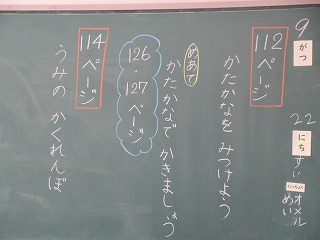 9がつ
22にちすい
にっちょく
オメル
めい
112ページ
かたかなを みつけよう
めあて
かたかなで かきましょう
126・127ページ
114ページ
うみの かくれんぼ